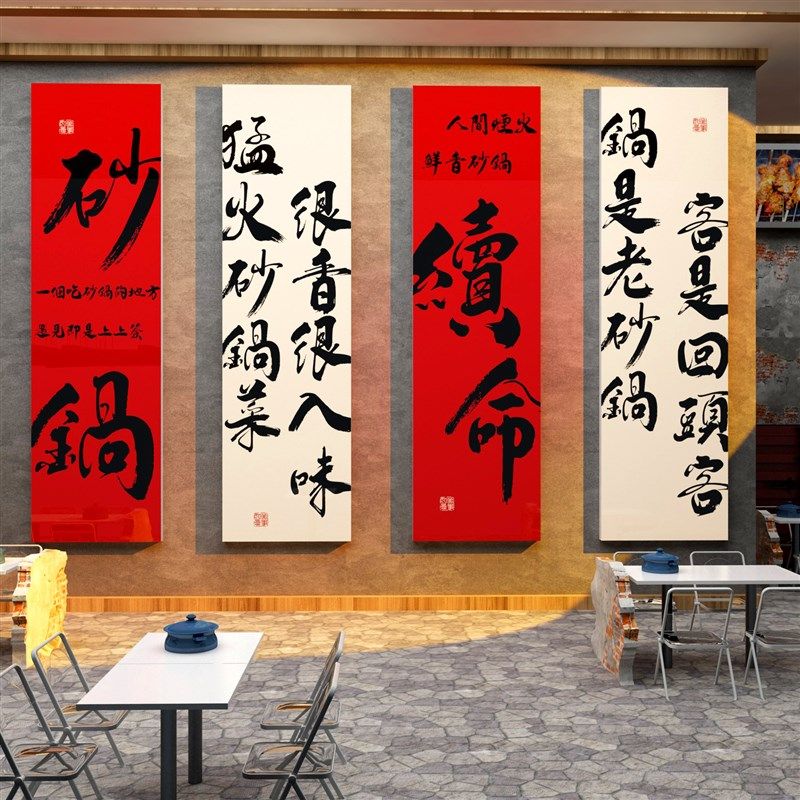 砂
一個吃砂鍋的地方
遇見即是上上簽
鍋
猛火砂鍋菜
很香很入味
人間煙火
鮮香砂鍋
續命
鍋是老砂鍋
客是回頭客